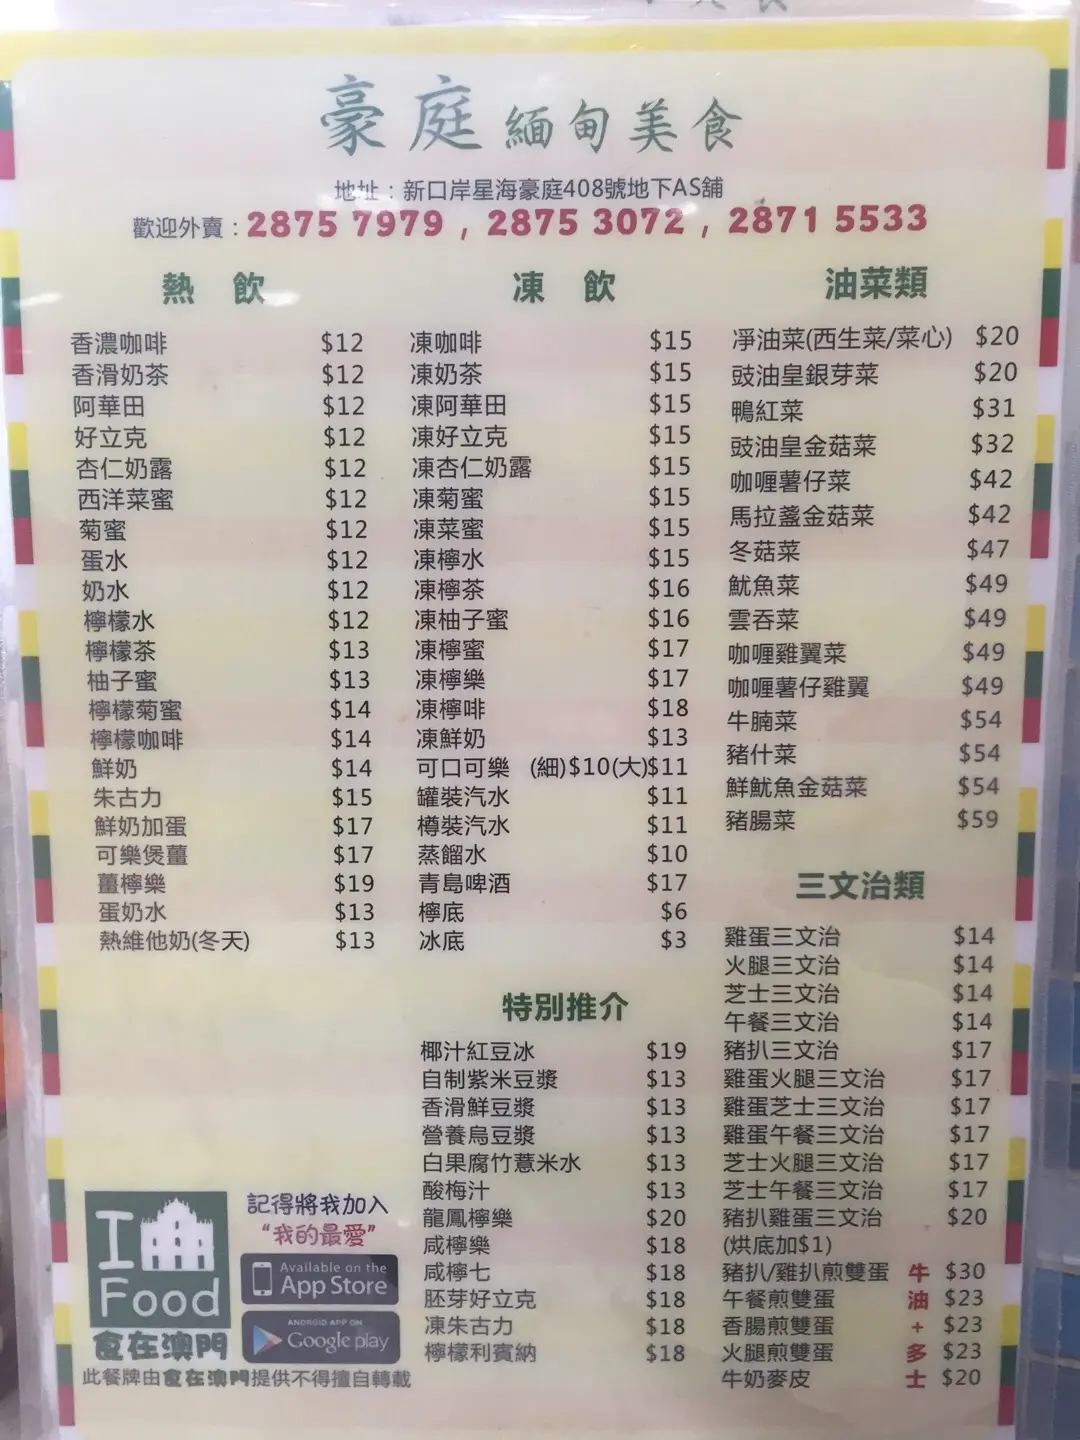 豪庭 緬甸美食
地址：新口岸星海豪庭408號地下AS舖
歡迎外賣：2875 7979，2875 3072，2871 5533
熱 飲
香濃咖啡 $12
香滑奶茶 $12
阿華田 $12
好立克 $12
杏仁奶露 $12
西洋菜蜜 $12
菊蜜 $12
蛋水 $12
奶水 $12
檸檬水 $12
檸檬茶 $13
柚子蜜 $13
檸檬菊蜜 $14
檸檬咖啡 $14
鮮奶 $14
朱古力 $15
鮮奶加蛋 $17
可樂煲薑 $17
薑檸樂 $19
蛋奶水 $13
熱維他奶(冬天) $13
凍 飲
凍咖啡 $15
凍奶茶 $15
凍阿華田 $15
凍好立克 $15
凍杏仁奶露 $15
凍菊蜜 $15
凍菜蜜 $15
凍檸水 $15
凍檸茶 $16
凍柚子蜜 $16
凍檸蜜 $17
凍檸樂 $17
凍檸啡 $18
凍鮮奶 $13
可口可樂 (細)$10(大)$11
罐裝汽水 $11
樽裝汽水 $11
蒸餾水 $10
青島啤酒 $17
檸底 $6
冰底 $3
特別推介
椰汁紅豆冰 $19
自制紫米豆漿 $13
香滑鮮豆漿 $13
營養烏豆漿 $13
白果腐竹薏米水 $13
酸梅汁 $13
龍鳳檸樂 $20
咸檸樂 $18
咸檸七 $18
胚芽好立克 $18
凍朱古力 $18
檸檬利賓納 $18
油菜類
淨油菜(西生菜/菜心) $20
豉油皇銀芽菜 $20
鴨紅菜 $31
豉油皇金菇菜 $32
咖喱薯仔菜 $42
馬拉盞金菇菜 $42
冬菇菜 $47
魷魚菜 $49
雲吞菜 $49
咖喱雞翼菜 $49
咖喱薯仔雞翼 $49
牛腩菜 $54
豬什菜 $54
鮮魷魚金菇菜 $54
豬腸菜 $59
三文治類
雞蛋三文治 $14
火腿三文治 $14
芝士三文治 $14
午餐三文治 $14
豬扒三文治 $17
雞蛋火腿三文治 $17
雞蛋芝士三文治 $17
雞蛋午餐三文治 $17
芝士火腿三文治 $17
芝士午餐三文治 $17
豬扒雞蛋三文治 $20
(烘底加$1)
豬扒/雞扒煎雙蛋 牛 $30
午餐煎雙蛋 油 $23
香腸煎雙蛋 + $23
火腿煎雙蛋 多 $23
牛奶麥皮 士 $20
I
Food
食在澳門
記得將我加入
“我的最愛”
Available on the
App Store
ANDROID APP ON
Google play
此餐牌由食在澳門提供不得擅自轉載